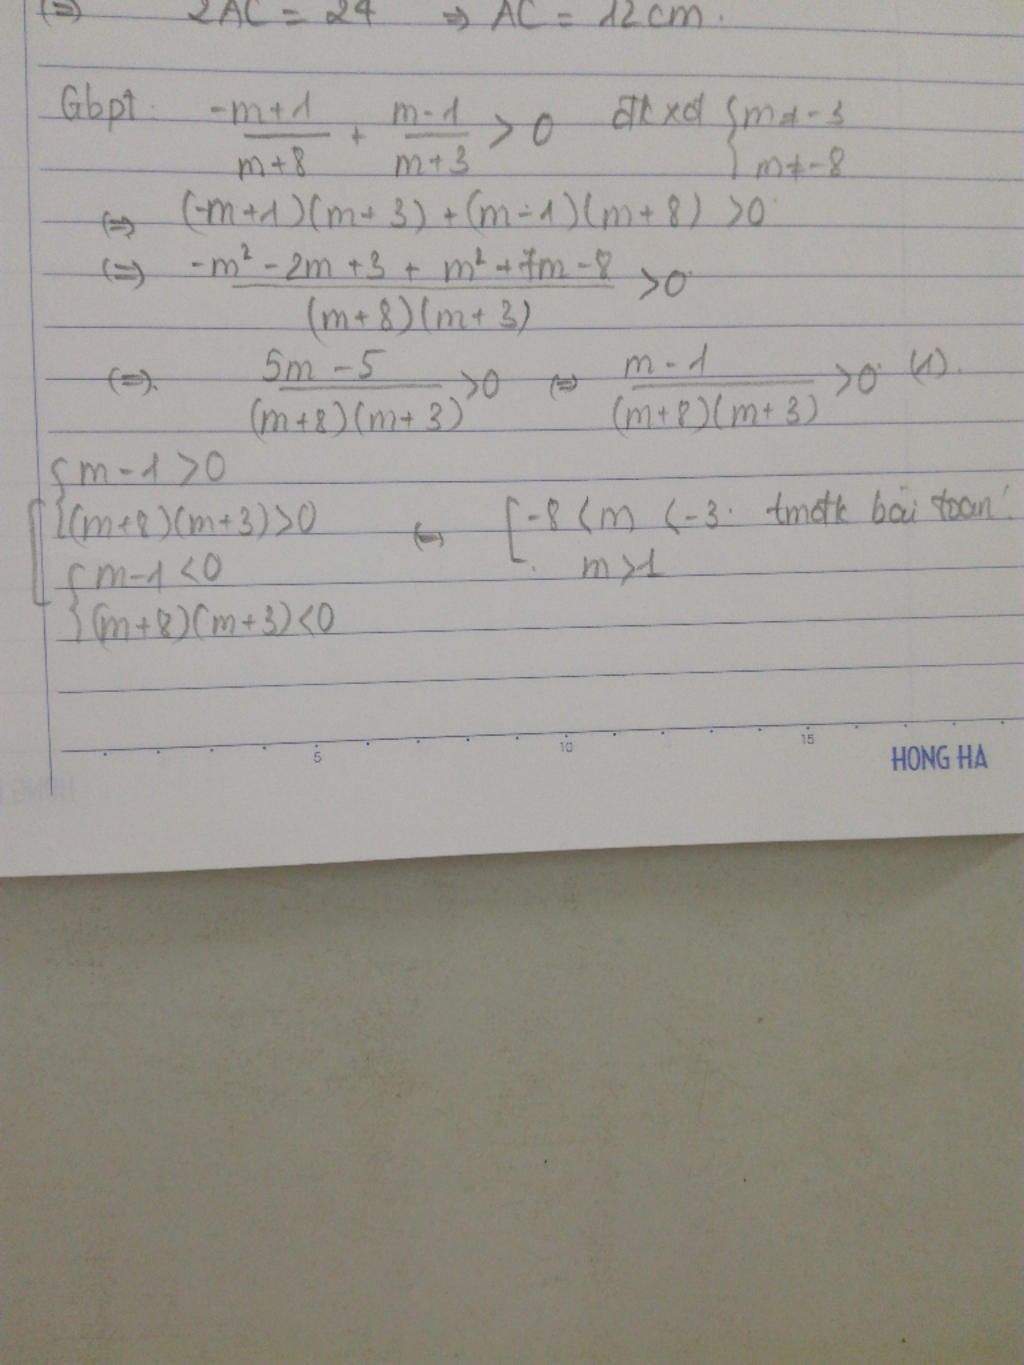 (=) 2AC = 24 => AC = 12cm.
Gbpt. (-m+1)/(m+8) + (m-1)/(m+3) > 0 đkxđ { m ≠ -3
m ≠ -8
(=) (-m+1)(m+3) + (m-1)(m+8) > 0
(=) (-m² - 2m + 3 + m² + 7m - 8)/((m+8)(m+3)) > 0
(=). (5m - 5)/((m+8)(m+3)) > 0 (=) (m-1)/((m+8)(m+3)) > 0 (1).
{ m - 1 > 0
[ { (m+8)(m+3) > 0 (=) [ -8 < m < -3. tmđk bài toán.
{ m - 1 < 0 m > 1
{ (m+8)(m+3) < 0
5 10 15
HONG HA